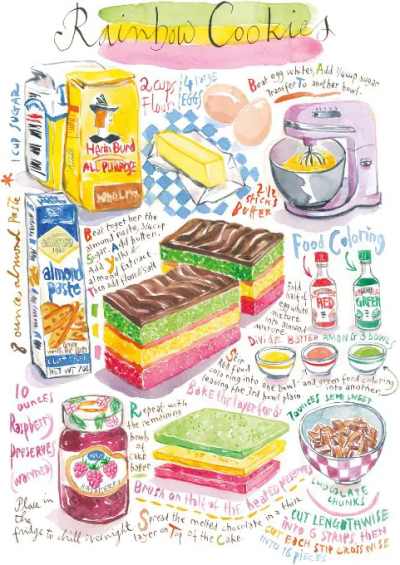 Rainbow Cookies
* 1 CUP SUGAR
Harin Burd
ALL PURPOSE
2 cups
Flour
4 large
EGGS
Beat egg whites, Add 1/4 cup sugar
Transfer To another bowl.
2 1/2
sticks
BUTTER
8 ounces almond paste
almond
paste
NET WT 7oz
Beat together the
almond paste, 3/4 cup
Sugar. Add butter.
Add yolks,
almond Extract
Then add flour/salt
Food Coloring
RED
GREEN
Fold
half of
egg white
mixture
into almond
mixture
DIVIDE BATTER AMONG 3 BOWLS
Stir
red food
coloring into one bowl
leaving the 3rd bowl plain
and green food coloring
into another
Bake the layer for 8'
10
ounces
Raspberry
Preserves
(warmed)
RASPBERRY
Repeat with
the remaining
bowls
of
cake
bater
7 ounces SEMI SWEET
CHOCOLATE
CHUNKS
Brush on Half of the heated preserves
Place in
the
fridge to chill overnight
Spread the melted chocolate in a thin
layer on Top of the Cake
CUT LENGTHWISE
INTO 6 STRIPS, THEN
CUT EACH STIP CROSSWISE
INTO 16 PIECES